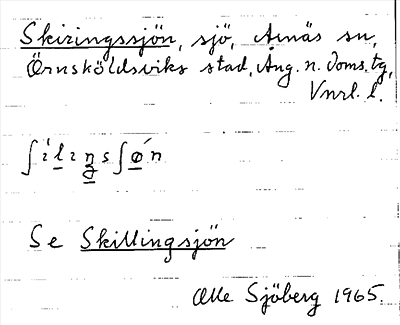 Skiringssjön, sjö, Arnäs sn,
Örnsköldsviks stad, Ång. n. doms. tg,
Vnrl. l.
ʃilıŋsʃøn
Se Skillingsjön
Olle Sjöberg 1965.